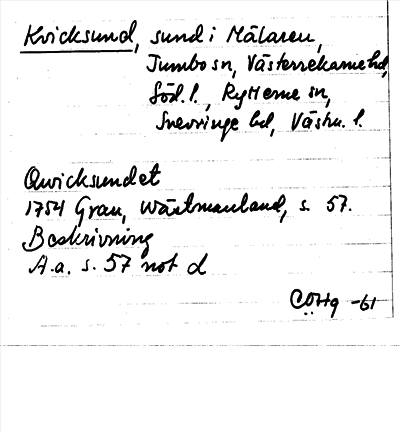 Kvicksund, sund i Mälaren,
Jumbo sn, Västerrekarne hd,
Söd. l., Rytterne sn,
Snevringe hd, Västm. l.
Qwicksundet
1754 Grau, Wästmanland, s. 57.
Beskrivning
A.a. s. 57 not d
CÖHg -61